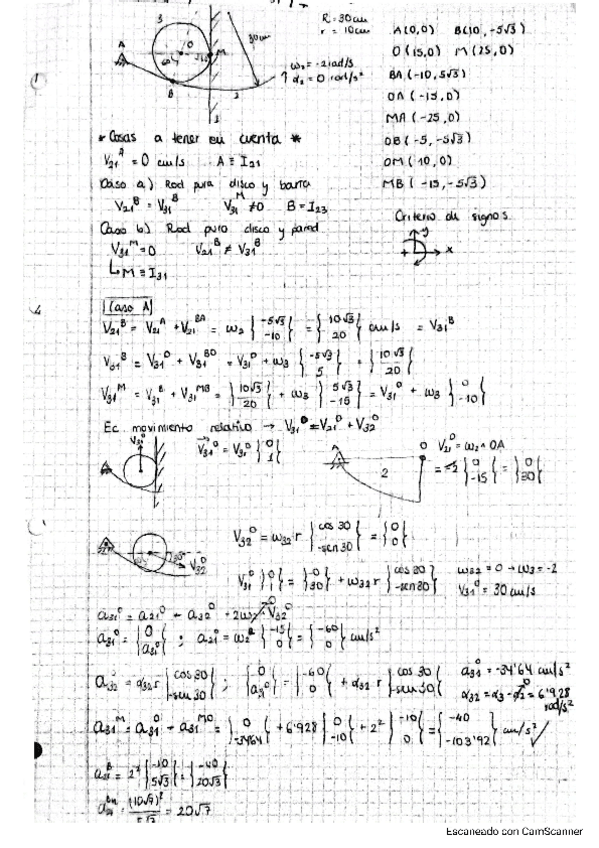 R = 30 cm
r = 10 cm
A(0,0) B(10, -5√3)
O(15,0) M(25,0)
BA(-10, 5√3)
OA(-15,0)
MA(-25,0)
OB(-5, -5√3)
OM(10,0)
MB(-15, -5√3)
3
A
O
M
B
60°
30cm
2
1
ω₂ = -2 rad/s
α₂ = 0 rad/s²
* Cosas a tener en cuenta *
V₂₁ᴬ = 0 cm/s A ≡ I₂₁
Caso a) Rod pura disco y barra
V₂₁ᴮ = V₃₁ᴮ V₃₁ᴹ ≠ 0 B = I₂₃
Caso b) Rod pura disco y pared
V₃₁ᴹ = 0 V₂₁ᴮ ≠ V₃₁ᴮ
↳ M ≡ I₃₁
Criterio de signos
y
+
x
Caso A
V₂₁ᴮ = V₂₁ᴬ + V₂₁ᴮᴬ = ω₂ {-5√3 / -10} = {10√3 / 20} cm/s = V₃₁ᴮ
V₃₁ᴮ = V₃₁ᴼ + V₃₁ᴮᴼ = V₃₁ᴼ + ω₃ {-5√3 / 5} = {10√3 / 20}
V₃₁ᴹ = V₃₁ᴮ + V₃₁ᴹᴮ = {10√3 / 20} + ω₃ {5√3 / -15} = V₃₁ᴼ + ω₃ {0 / -10}
Ec. movimiento relativo → V₃₁ᴼ = V₂₁ᴼ + V₃₂ᴼ
V₃₁ᴼ
V₃₁ᴼ = V₃₁ᴼ {0 / 1}
2
O
V₂₁ᴼ = ω₂ ∧ OA
= -2 {0 / -15} = {0 / 30}
30°
V₃₂ᴼ
V₃₂ᴼ = ω₃₂ r {cos 30 / -sen 30} = {0 / 0}
V₃₁ {0 / 1} = {0 / -30} + ω₃₂ r {cos 30 / -sen 30} ω₃₂ = 0 → ω₃ = -2
V₃₁ᴼ = 30 cm/s
a₃₁ᴼ = a₂₁ᴼ + a₃₂ᴼ + 2ω₂ V₃₂ᴼ
a₃₁ᴼ = {0 / a₃₁ᴼ} ; a₂₁ᴼ = ω₂² {-15 / 0} = {-60 / 0} cm/s²
a₃₂ᴼ = α₃₂ r {cos 30 / -sen 30} ; {0 / a₃₁ᴼ} = {-60 / 0} + α₃₂ r {cos 30 / -sen 30} a₃₁ᴼ = -34'64 cm/s²
α₃₂ = α₃ - α₂ = 6'928 rad/s²
a₃₁ᴹ = a₃₁ᴼ + a₃₁ᴹᴼ = {0 / -34'64} + 6'928 {0 / -10} + 2² {-10 / 0} = {-40 / -103'92} cm/s² ✓
a₂₁ᴮ = 2² {-10 / 5√3} = {-40 / 20√3}
= 20√7
Escaneado con CamScanner